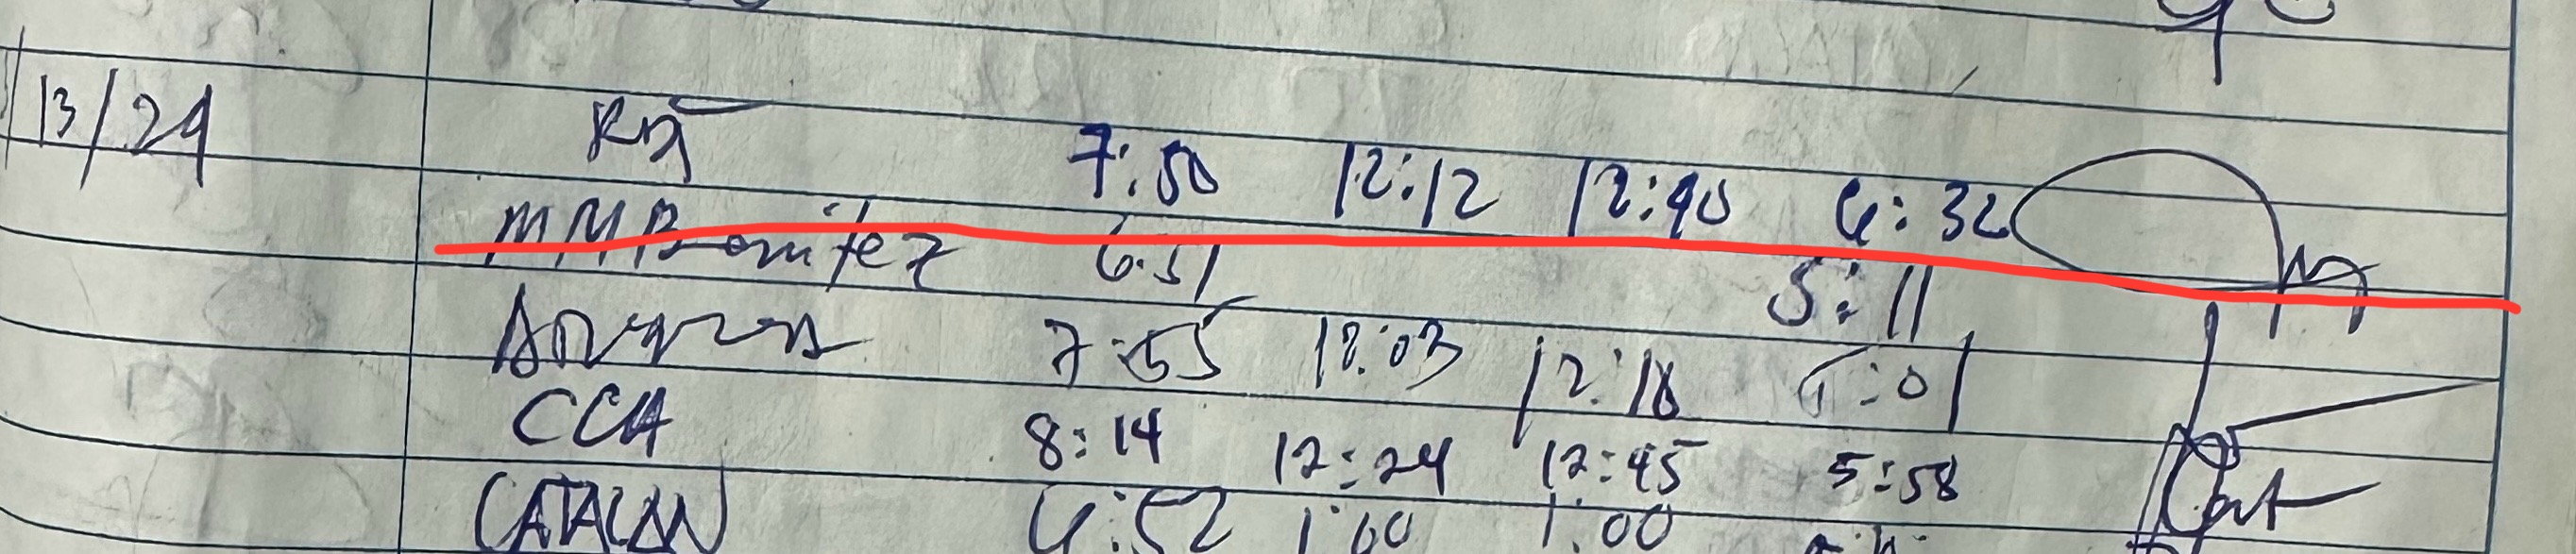 13/24 7:50 12:12 12:40 6:32
MMBenitez 6:51 5:11
7:55 12:03 12:18 5:01
CCA 8:14 12:24 12:45 5:58
CATALAN 6:52 1:00 1:00